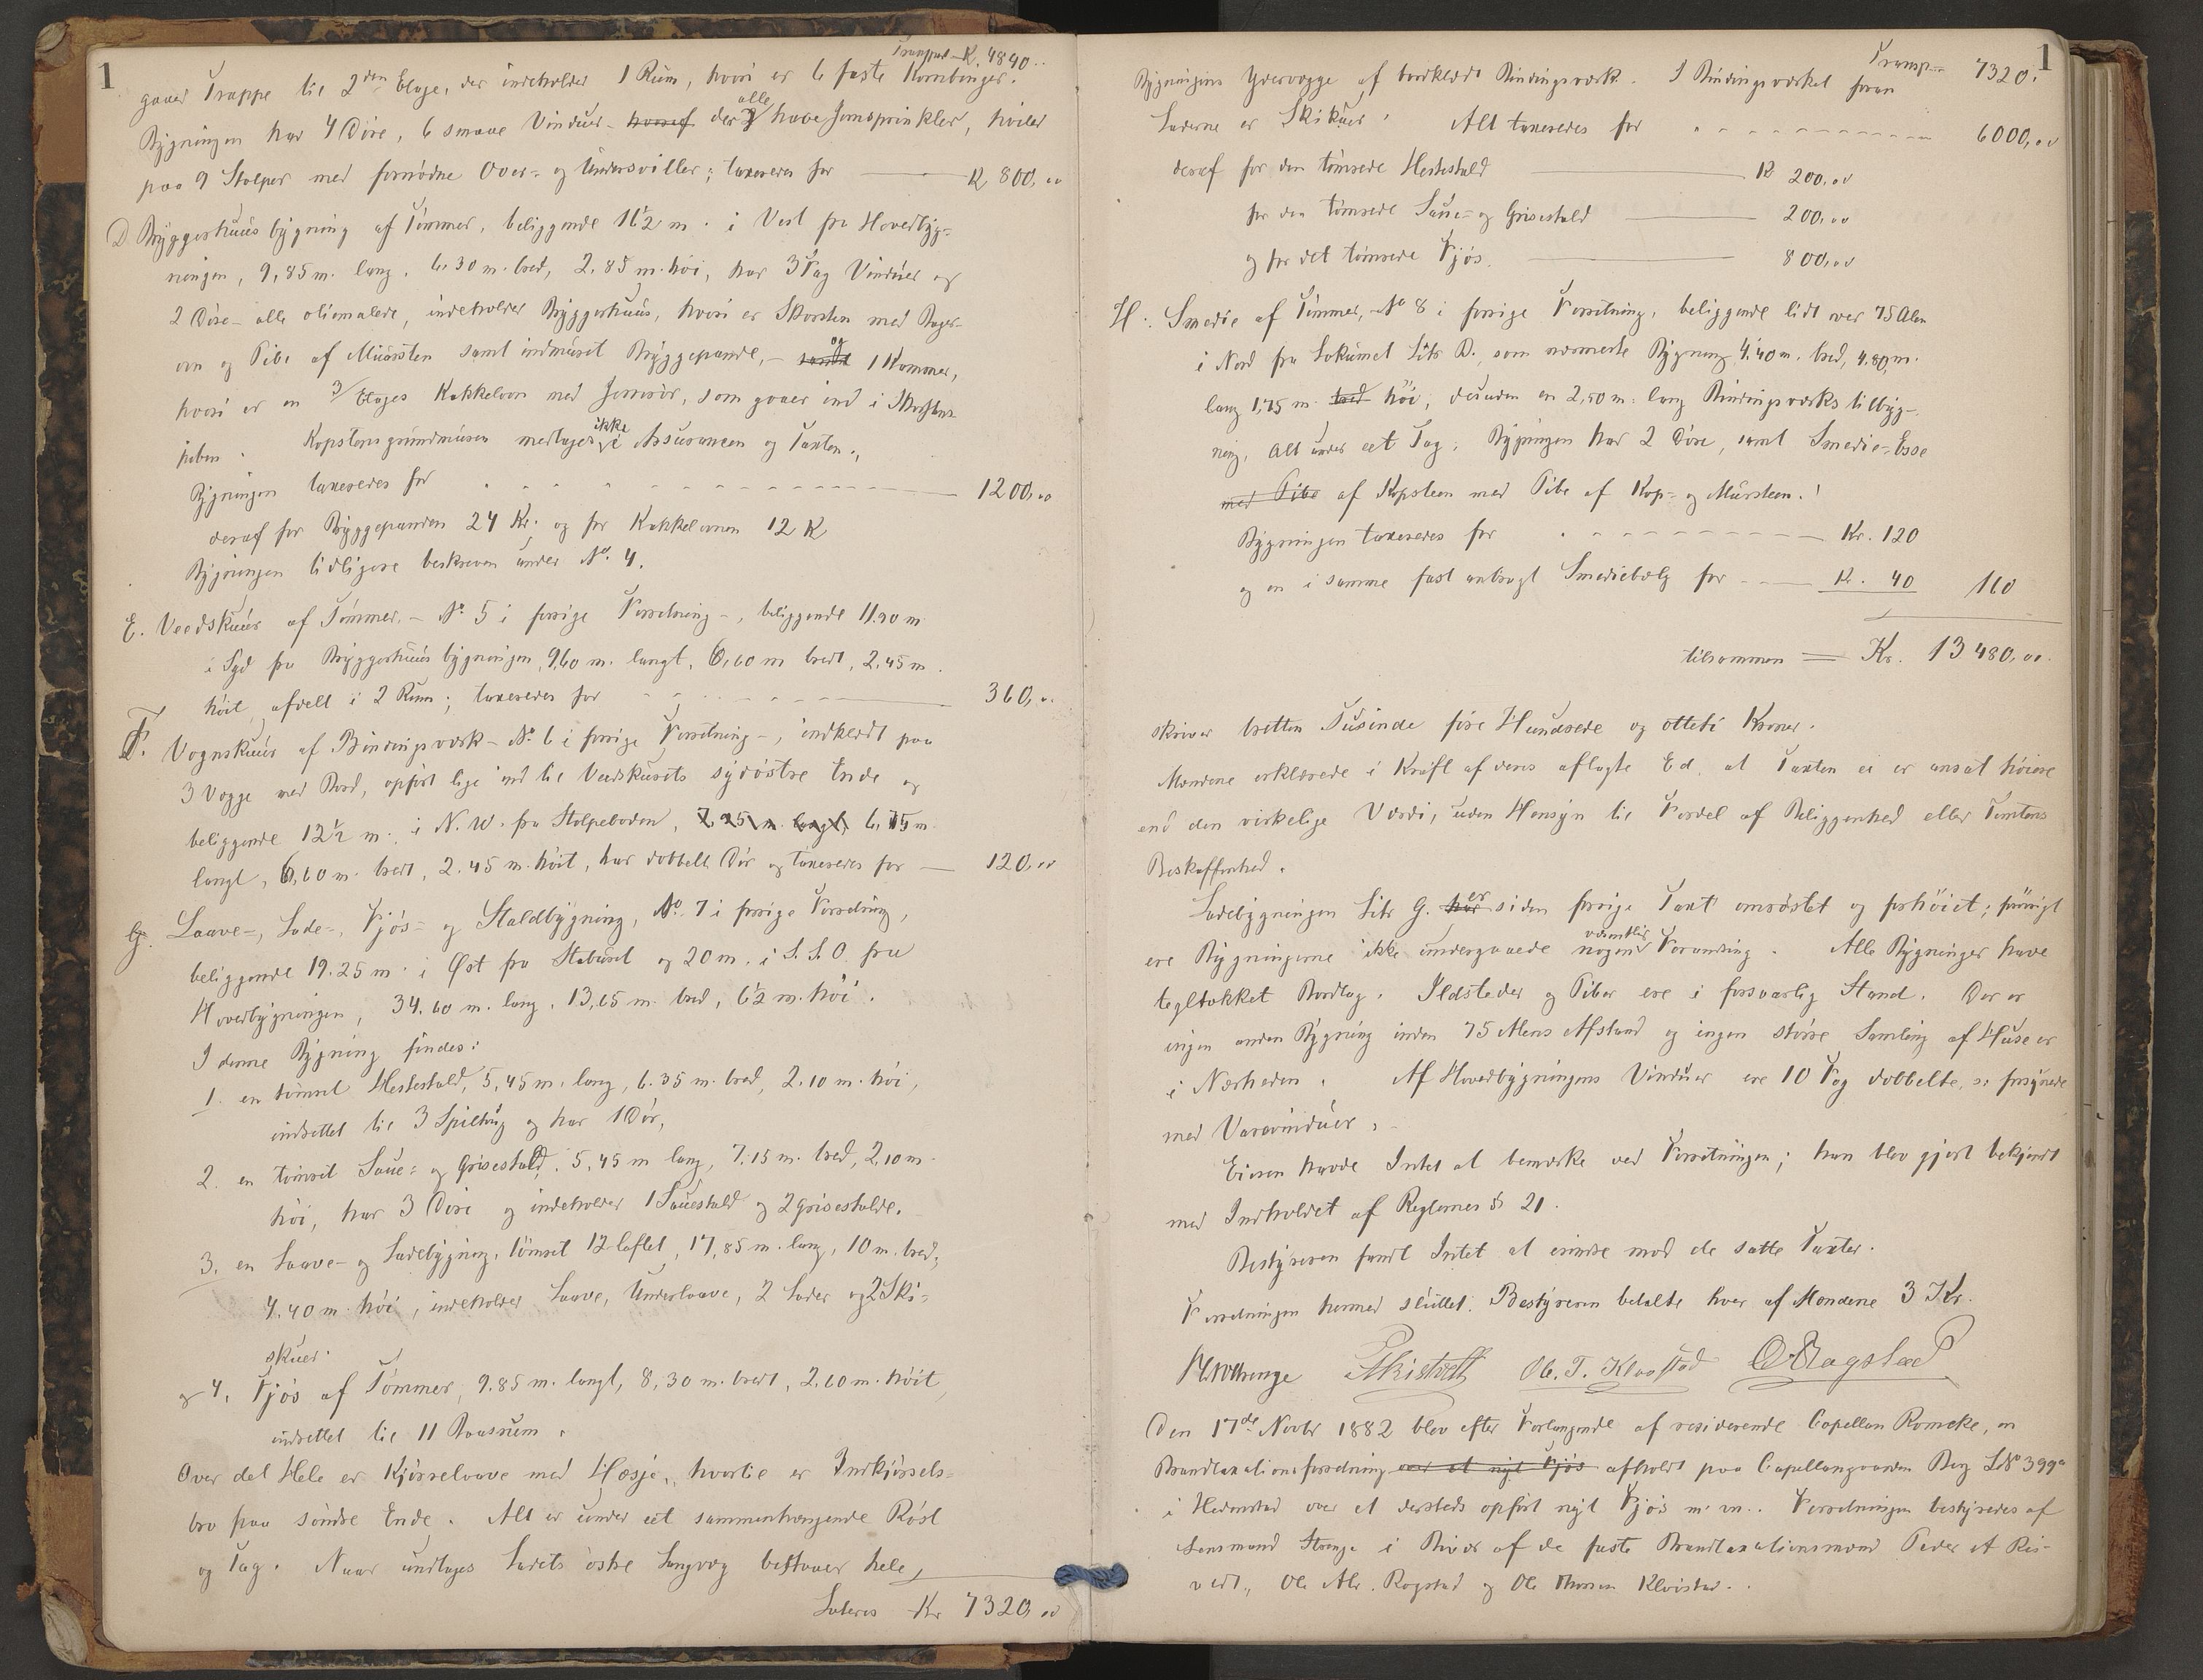 1
Transport K. 4840..
gaaer Trappe til 2den Etage, der indeholder 1 Rum, hvori er 6 faste Kornbinger.
Bygningen har 4 Döre, 6 smaae Vinduer - hvoraf der alle have Jernsprinkler, hviler
paa 9 Stolper med fornödne Over- og Undersviller; taxeres for K 800,00
D Bryggerhuusbygning af Tömmer, beliggende 11½ m. i Vest fra Hovedbyg-
ningen, 9,85 m. lang, 6.30 m. bred, 2.85 m. höi, har 3 Fag Vinduer og
2 Döre - alle oliemalede, indeholder Bryggerhuus, hvori er Skorsten med Bager-
ovn og Pibe af Muursten samt indmuret Bryggepande, - samt og 1 Kammer,
hvori er en 3 Etages Kakkelovn med Jernrör, som gaaer ind i Skorstens-
piben. Kopstensgrundmuren medtages ikke i Assurancen og Taxten.,
Bygningen taxeres for 1200,00
deraf for Bryggepanden 24 Kr. og for Kakkelovnen 12 K
Bygningen tidligere beskreven under No. 4.
E. Veedskuur af Tömmer. - No. 5 i forrige Forretning -, beliggende 11.90 m
i Syd fra Bryggerhuusbygningen, 9,60 m. langt, 6,60 m bredt, 2,45 m.
höit, afdelt i 2 Rum; taxeres for 360,..
F. Vognskuur af Bindingsværk - No. 6 i forrige Forretning -, indklædt paa
3 Vægge med Bord, opfört lige ind til Vedskurets sydöstre Ende og
beliggende 12½ m. i N.W. fra Stolpeboden, 7,95 m. langt, 6,75 m.
langt, 6,60 m. bredt, 2.45 m. höit, har dobbelt Dör og taxeres for 120,00
G. Laave-, Lade-, Fjös- og Staldbygning, No. 7 i forrige Forretning,
beliggende 19.25 m. i Øst fra Stabüret og 20 m. i S.S.O. fra
Hovedbygningen, 34.60 m. lang, 13,65 m. bred, 6½ m. höi.
I denne Bygning findes:
1. en tömret Hestestald, 5,45 m. lang, 6.35 m. bred, 2,10 m. höi,
indrettet til 3 Spiltoug og har 1 Dör,
2. en tömret Saue- og Grisestald, 5,45 m lang, 7,15 m. bred, 2,10 m.
höi, har 3 Döre og indeholder 1 Sauestald og 2 Grisestalde.
3. en Laave- og Ladebygning, tömret 12-laftet, 17,85 m. lang, 10 m. bred,
4.40 m. höi, indeholder Laave, Underlaave, 2 Lader og 2 Ski-
skuer.
og 4. Fjös af Tömmer, 9.85 m. langt, 8,30 m. bredt, 2.60 m. höit,
indrettet til 11 Baasrum.
Over det Hele er Kjörselaave med Hæsje, hvortil er Indkjörsels-
bro paa söndre Ende. Alt er under eet sammenhængende Röst
og Tag. Naar undtages Ladets östre Langvæg bestaaer hele
Lateris Kr 7320,00
1
Transp. 7320.
Bygningens Ydervægge af bordklædt Bindingsværk. I Bindingsværket foran
Laderne er Skikuer. Alt taxeres for 6000,00
deraf for den tömrede Hestestald K 200,00
for den tömrede Saue- og Grisestald 200,00
og for det tömrede Fjös. 800,00
H.. Smedie af Tömmer, No 8 i forrige Forretning, beliggende lidt over 75 Alen
i Nord fra Lokumet Litr D., som nærmeste Bygning, 4.40 m. bred, 4.80 m.
lang 1,75 m. bred höi, desuden en 2,50 m. lang Bindingsværks tilbyg-
ning, Alt under eet Tag; Bygningen har 2 Döre, samt Smedie-Esse
med Pibe af Kopsteen med Pibe af Kop- og Mursteen.
Bygningen taxeres for Kr. 120
og en i samme fast anbragt Smediebælg for K. 40 160
tilsammen = Kr. 13480,00.
skriver tretten Tusinde fire Hundrede og otteti Kroner.
Mændene erklærede i Kraft af deres aflagte Ed, at Taxten ei er ansat höiere
end den virkelige Værdi, uden Hensyn til Fordel af Beliggenhed eller Tomtens
Beskaffenhed.
Ladebygningen Litr G. har er siden forrige Taxt omröstet og forhöiet; forövrigt
ere Bygningerne ikke undergaaede nogen væsentlig Forandring. Alle Bygninger have
tegltækket Bordtag. Ildsteder og Piber ere i forsvarlig Stand. Der er
ingen anden Bygning inden 75 Alens Afstand og ingen större Samling af Huse er
i Nærheden. Af Hovedbygningens Vinduer ere 10 Fag dobbelte, ɔ: forsynede
med Varevinduer.
Eieren havde Intet at bemærke ved Forretningen; han blev gjort bekjendt
med Indholdet af Reglernes § 21.
Bestyreren fandt Intet at erindre mod de satte Taxter.
Forretningen hermed sluttet. Bestyreren betalte hver af Mændene 3 Kr.
Ole. T. Klovstad O A Ragstad
Den 17de Novbr 1882 blev efter Forlangende af residerende Capellan Romcke, en
Brandtaxationsforretning over et nyt Fjös afholdt paa Capellangaarden Berg LNo 399a
i Hedenstad over et dersteds opfört nyt Fjös m. m.. Forretningen bestyredes af
Lensmand Strenge i Bivær af de faste Brandtaxationsmænd Peder A Kis-
vedt, Ole Alr. Ragstad og Ole Thorsen Klovstad.